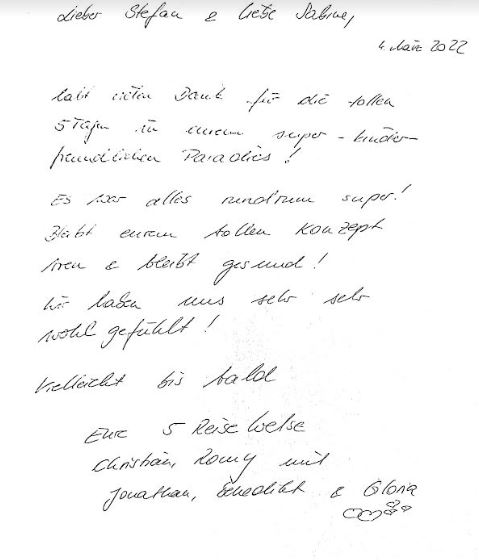 Lieber Stefan & liebe Sabine,
4. März 2022
habt vielen Dank für die tollen
5 Tagen in eurem super-kinder-
freundlichen Paradies!
Es war alles rundrum super!
Bleibt eurem tollen Konzept
treu & bleibt gesund!
Wir haben uns sehr sehr
wohl gefühlt!
Vielleicht bis bald
Eure 5 Reise
Christian, Romy mit
Jonathan, Benedikt & Gloria